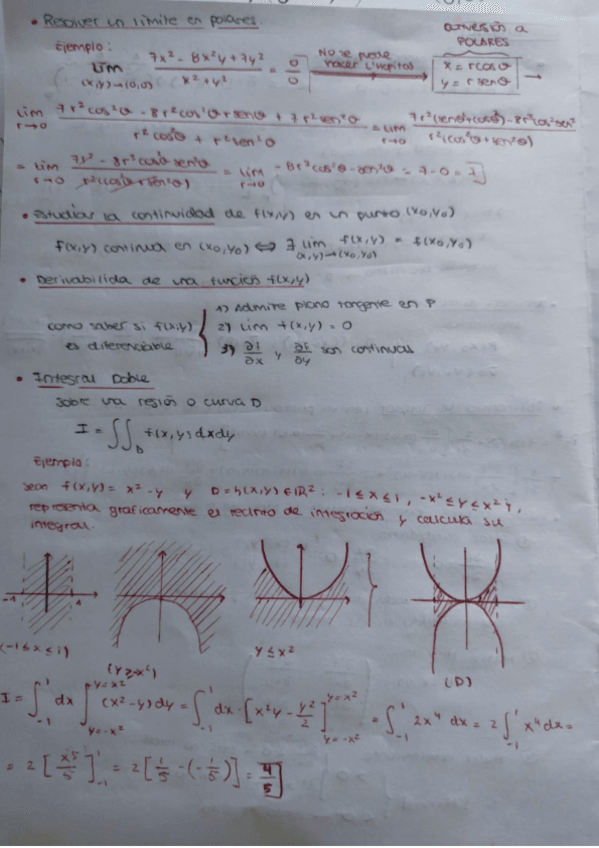 • Resolver un límite en polares.
Ejemplo: conversión a POLARES
lim (x,y)→(0,0) 7x² - 8x²y + 7y² / x² + y² = 0/0 NO se puede hacer L'Hopital → x = r cosθ y = r senθ →
lim r→0 7r² cos²θ - 8r² cos²θ r senθ + 7r² sen²θ / r² cos²θ + r² sen²θ = lim r→0
= lim r→0 = lim r→0 - 8r³ cos²θ · sen²θ = 7 - 0 = 7
• Estudiar la continuidad de f(x,y) en un punto (x₀,y₀)
f(x,y) continua en (x₀,y₀) ⟺ ∃ lim (x,y)→(x₀,y₀) f(x,y) = f(x₀,y₀)
• Derivabilida de una función f(x,y)
como saber si f(x,y) es diferenciable {
1) Admite plano tangente en P
2) lim f(x,y) = 0
3) ∂f/∂x y ∂f/∂y son continuas
• Integral Doble
Sobre una región o curva D
I = ∬_D f(x,y) dxdy
Ejemplo:
Sean f(x,y) = x² - y y D = {(x,y) ∈ ℝ² : -1 ≤ x ≤ 1, -x² ≤ y ≤ x²},
representa gráficamente el recinto de integración y calcula su
integral.
-1 1
(-1 ≤ x ≤ 1) (y ≥ -x²) y ≤ x² (D)
I = ∫₋₁¹ dx ∫_{y=-x²}^{y=x²} (x² - y) dy = ∫₋₁¹ dx · [x²y - y²/2]_{y=-x²}^{y=x²} = ∫₋₁¹ 2x⁴ dx = 2 ∫₋₁¹ x⁴ dx =
= 2 [x⁵/5]₋₁¹ = 2 [1/5 - (-1/5)] = 4/5